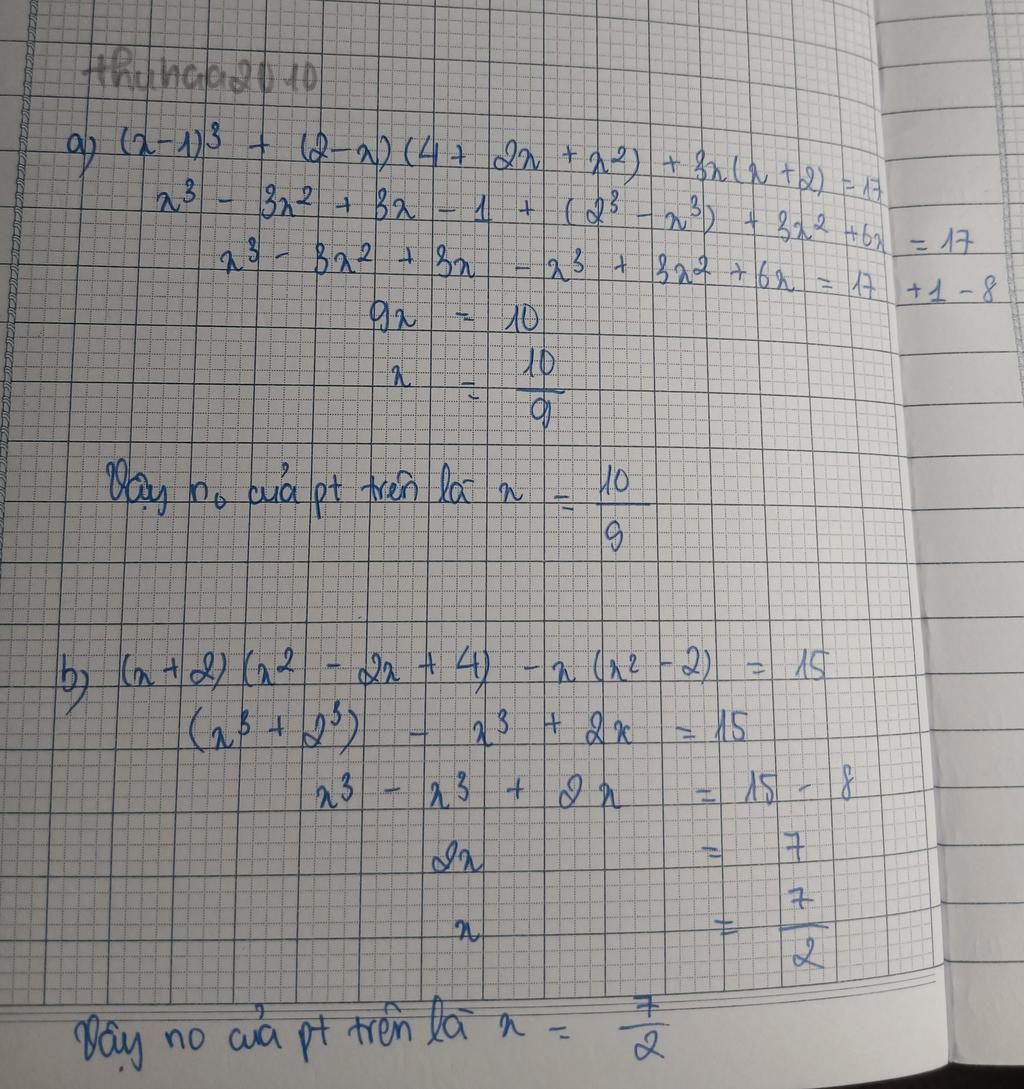 thuhaa2010
a) (x-1)³ + (2-x)(4 + 2x + x²) + 3x(x+2) = 17
x³ - 3x² + 3x - 1 + (2³ - x³) + 3x² + 6x = 17
x³ - 3x² + 3x - x³ + 3x² + 6x = 17 + 1 - 8
9x = 10
x = 10/9
Vậy no của pt trên là x = 10/9
b) (x+2)(x² - 2x + 4) - x(x² - 2) = 15
(x³ + 2³) - x³ + 2x = 15
x³ - x³ + 2x = 15 - 8
2x = 7
x = 7/2
Vậy no của pt trên là x = 7/2